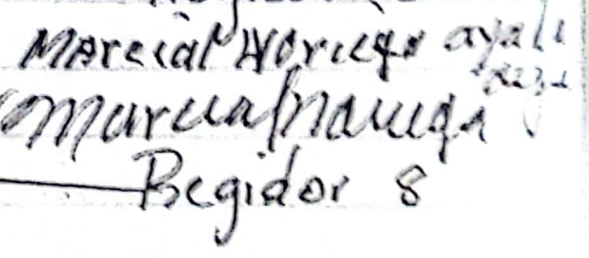 Marcial Noriega
Marcial Noriega
Regidor 8